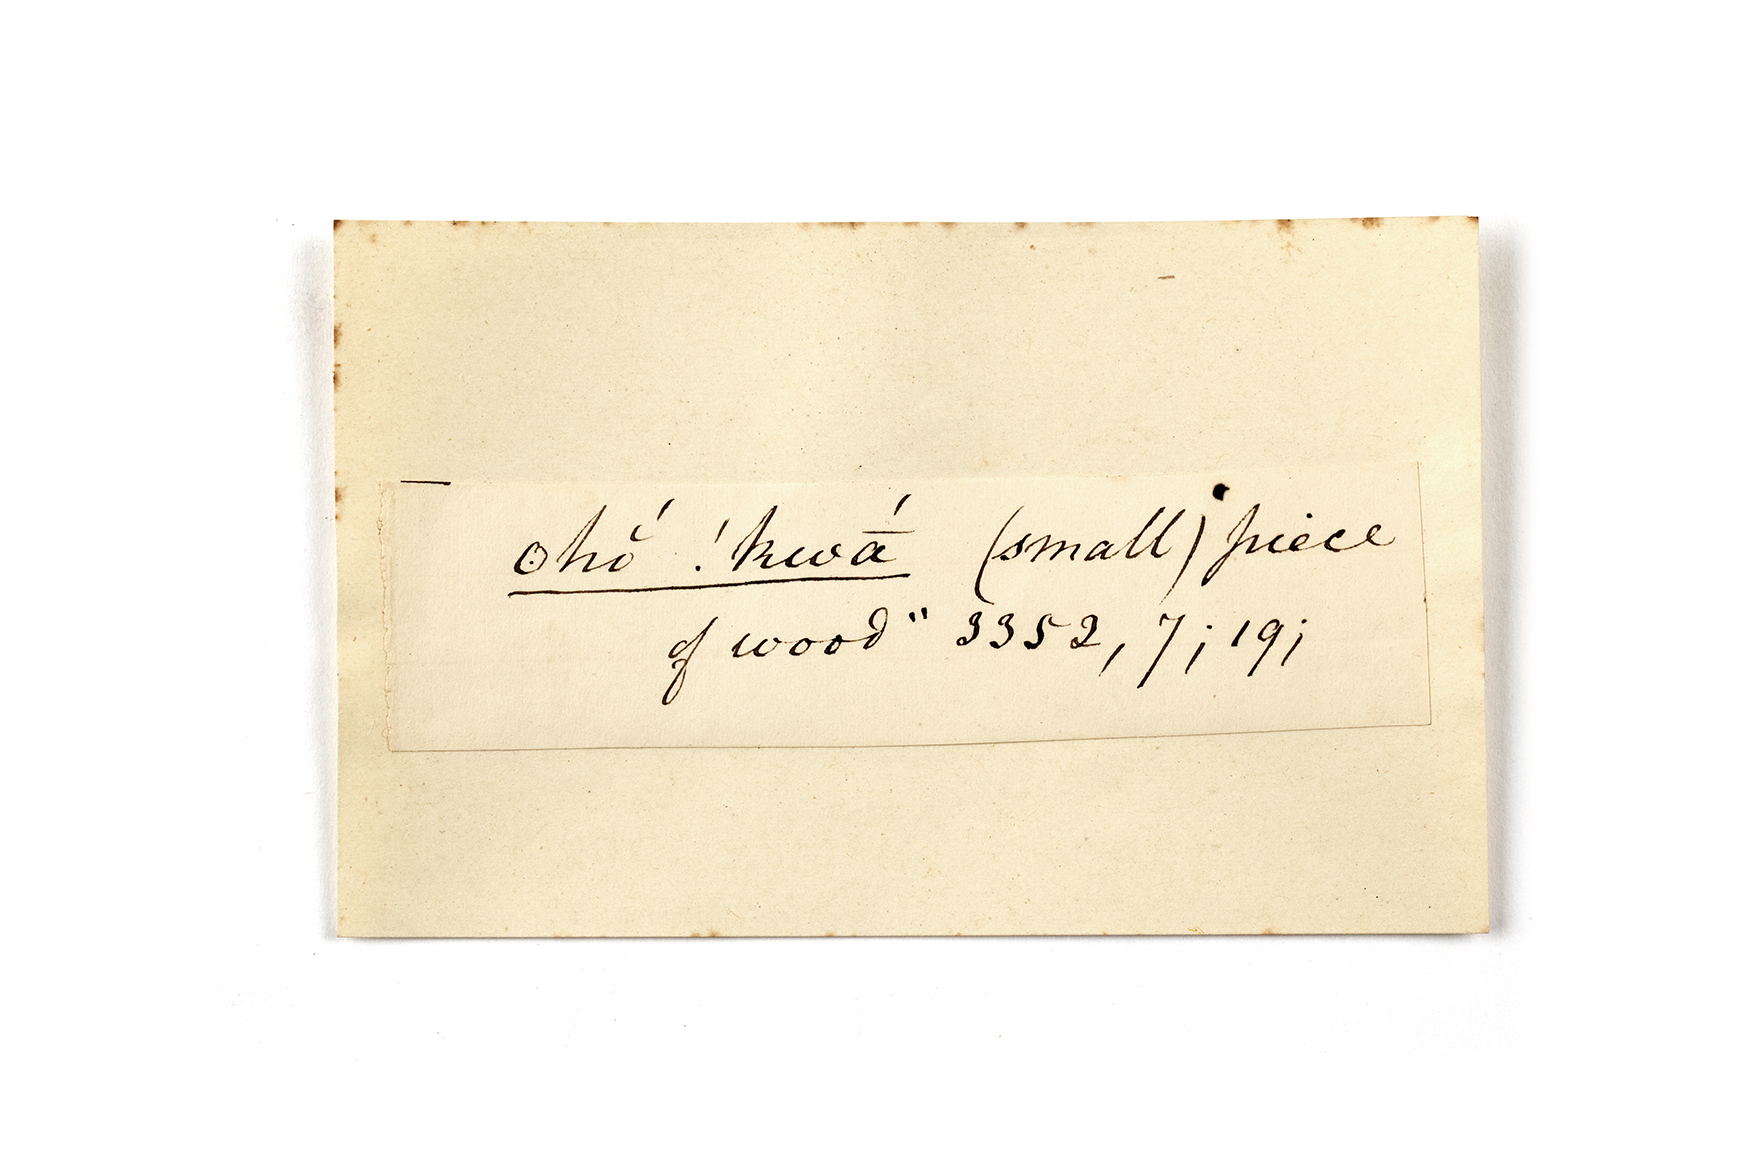 ʘhŏ́ !kwā́ (small) piece
of wood" 3352, 7; 19;